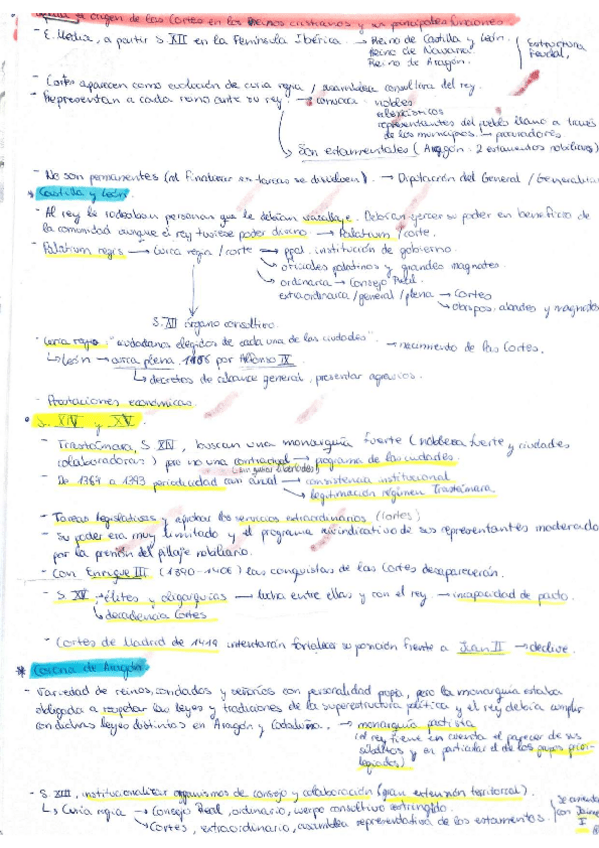 el origen de las Cortes en los Reinos cristianos y sus principales funciones
- E. Media, a partir S. XII en la Península Ibérica. → Reino de Castilla y León. Estructura
Reino de Navarra feudal,
Reino de Aragón.
- Cortes aparecen como evolución de curia regia / asamblea consultiva del rey.
- Representan a cada reino ante su rey. → convoca nobles
eclesiásticos
representantes del pueblo llano a través
de los municipios. → procuradores
Son estamentales (Aragón: 2 estamentos nobiliarios)
- No son permanentes (al finalizar sus tareas se disuelven). → Diputación del General /
* Castilla y León.
- Al rey le rodeaban personas que le debían vasallaje. Deberían ejercer su poder en beneficio de
la comunidad aunque el rey tuviese poder divino → Palatium / corte.
- Palatium regis → Curia regia / corte → ppal. institución de gobierno.
oficiales palatinos y grandes magnates.
ordinaria → Consejo Real.
extraordinaria / general / plena → Cortes
obispos, abades y magnates
S. XII órgano consultivo.
- Curia regia: "ciudadanos elegidos de cada una de las ciudades". → nacimiento de las Cortes.
León → curia plena, por Alfonso IX
decretos de alcance general, presentar agravios.
- Prestaciones económicas.
• S. XIV y XV.
- Trastámara, S. XIV, buscan una monarquía fuerte (nobleza fuerte y ciudades
colaboradoras) pero no una contractual → programa de las ciudades.
- De 1367 a 1393 periodicidad casi anual → consistencia institucional
legitimación régimen Trastámara.
- Tareas legislativas y aprobar los servicios extraordinarios (Cortes)
- Su poder era muy limitado y el programa reivindicativo de sus representantes moderado
por la presión del pillaje nobiliario.
- Con Enrique III (1390-1406) las conquistas de las Cortes desaparecerán.
- S. XV → élites y oligarquías → lucha entre ellas y con el rey. → incapacidad de pacto.
decadencia Cortes
- Cortes de Madrid de 1419 intentarán fortalecer su posición frente a Juan II → declive.
* Corona de Aragón
- Variedad de reinos, condados y señoríos con personalidad propia, pero la monarquía estaba
obligada a respetar las leyes y tradiciones de la superestructura política y el rey debía cumplir
con dichas leyes distintas en Aragón y Cataluña. → monarquía pactista
(el rey tiene en cuenta el parecer de sus
súbditos y en particular el de los grupos privi-
legiados)
- S. XIII, institucionalizar organismos de consejo y colaboración (gran extensión territorial).
Curia regia → Consejo Real, ordinario, cuerpo consultivo restringido.
Cortes, extraordinario, asamblea representativa de los estamentos. con Jaime
I